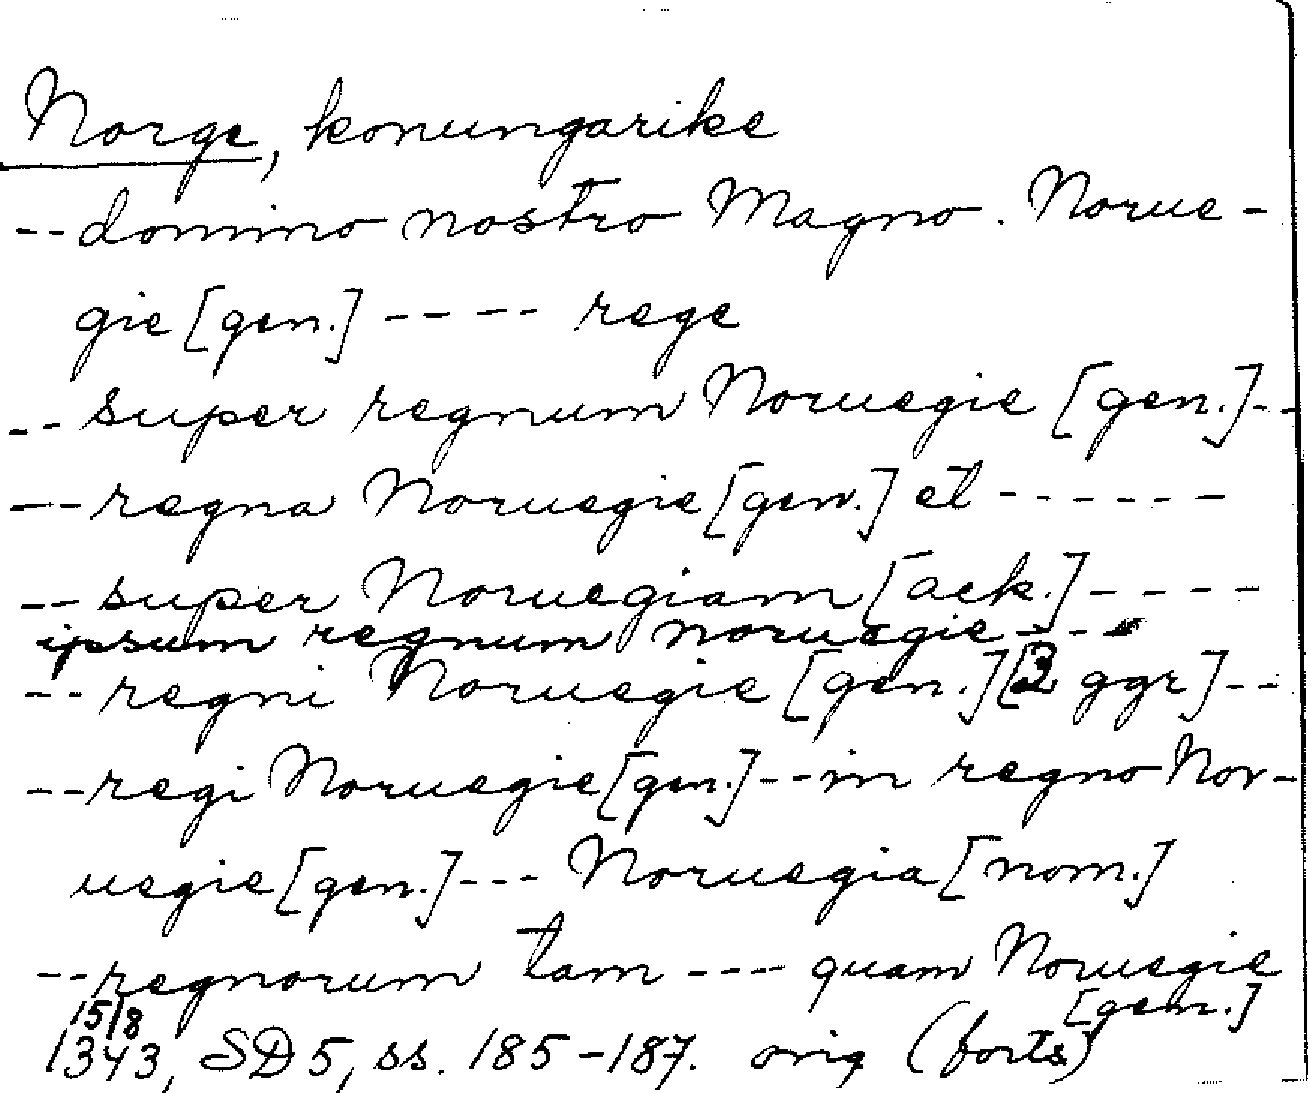 Norge, konungarike
-- domino nostro Magno. Norue-
gie [gen.] ---- rege
-- super regnum Noruegie [gen.] --
-- regna Noruegie [gen.] et ------
-- super Noruegiam [ack.] ----
ipsum regnum noruegie ---
-- regni Noruegie [gen.] [3 ggr] --
-- regi Noruegie [gen.] -- in regno Nor-
uegie [gen.] --- Noruegia [nom.]
-- regnorum tam --- quam Noruegie
[gen.]
15/8
1343, SD 5, ss. 185-187. orig (forts)